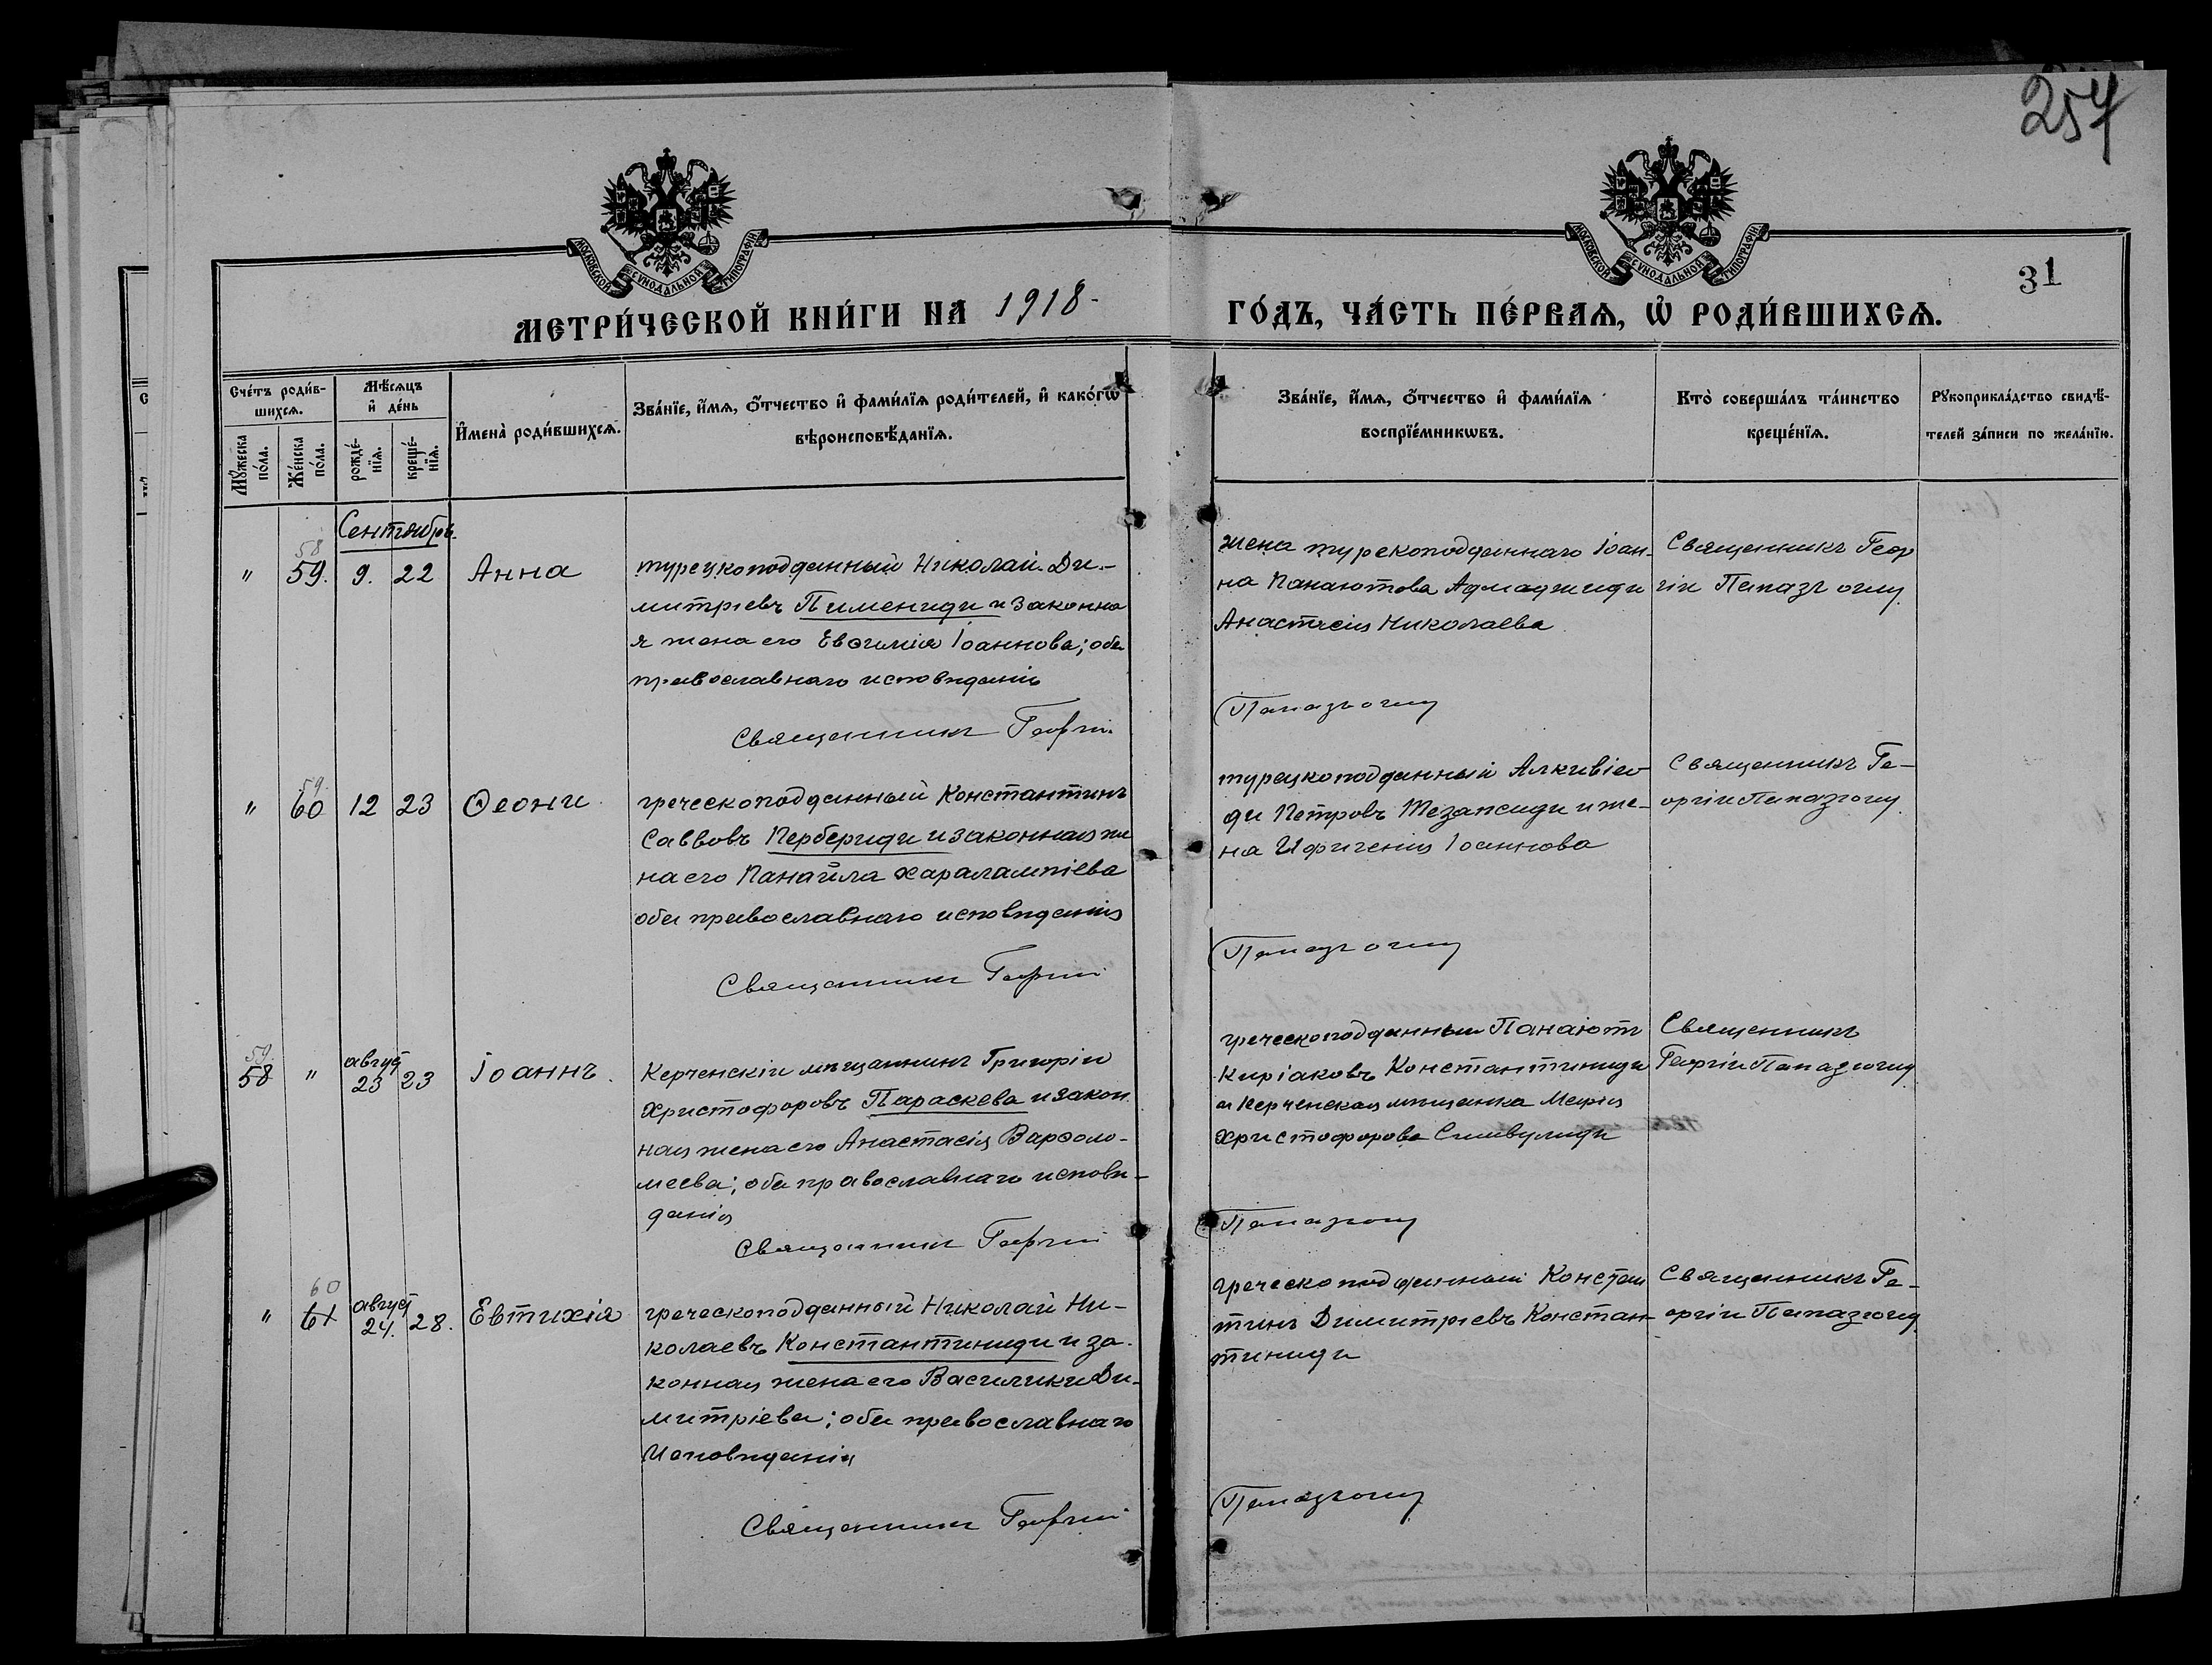 257
31
МОСКОВСКОЙ СѴНОДАЛЬНОЙ ТИПОГРАФІИ
МОСКОВСКОЙ СѴНОДАЛЬНОЙ ТИПОГРАФІИ
МЕТРИ́ЧЕСКОЙ КНИ́ГИ НА 1918-
ГО́ДЪ, ЧА́СТЬ ПЕ́РВАѦ, Ѽ РОДИ́ВШИХСѦ.
Сче́тъ роди́в-
шихсѧ.
Мꙋ́жеска
по́ла.
Же́нска
по́ла.
Мѣ́сѧцъ
и҆ де́нь
рожде́-
нїѧ.
креще́-
нїѧ.
И҆мена̀ роди́вшихсѧ.
Зва́нїе, и҆́мѧ, ѻ҆́тчество и҆ фами́лїѧ роди́телей, и҆ како́гѡ
вѣроисповѣ́данїѧ.
Зва́нїе, и҆́мѧ, ѻ҆́тчество и҆ фами́лїѧ
воспрїе́мникѡвъ.
Кто̀ соверша́лъ та́инство
креще́нїѧ.
Рꙋкоприкла́дство свидѣ́-
телей за́писи по жела́нїю.
Сентябрь.
58
" 59. 9. 22 Анна
турецкоподданный Николай Ди-
митріевъ Пимениди и законна
я жена его Евѳимія Іоаннова; оба
православнаго исповѣданія
Священникъ Георгій
жена турекоподданнаго Іоан-
на Панаютова
Анастасія Николаева
Папазъ оглу
Священникъ Геор
гій Папазъ оглу
59
" 60 12 23 Ѳеони
греческоподданный Константинъ
Саввовъ Пербериди и законная же
на его Панайла Харалампіева
оба православнаго исповѣданія
Священникъ Георгій
турецкоподданный Алкивіа
ди Петровъ Тезапсиди и же-
на Ифигенія Іоаннова
Папазъ оглу
Священникъ Ге-
оргій Папазъоглу
59.
58 " август 23 23 Іоаннъ.
Керченскій мѣщанинъ Григорій
Христофоровъ Параскева и закон
ная жена его Анастасія Варѳоло-
меева; оба православнаго исповѣ-
данія
Священникъ Георгій
греческоподданный Панаютъ
Киріаковъ Константиниди
и Керченская мѣщанка Марія
Христофорова Симвулиди
Папазъоглу
Священникъ
Георгій Папазъоглу
60
" 61 август 24. 28. Евтихія
греческоподданный Николай Ни-
колаевъ Константиниди и за-
конная жена его Василики Ди-
митріева; оба православнаго
Исповѣданія
Священникъ Георгій
греческоподданный Констан
тинъ Димитріевъ Констан-
тиниди
Папазъоглу
Священникъ Ге-
оргій Папазъоглу